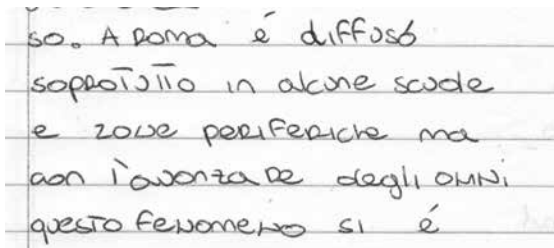 so. A Roma é diffuso
soprotutto in alcune scuole
e zone periferiche ma
con l'avonzare degli onni
questo fenomeno si é